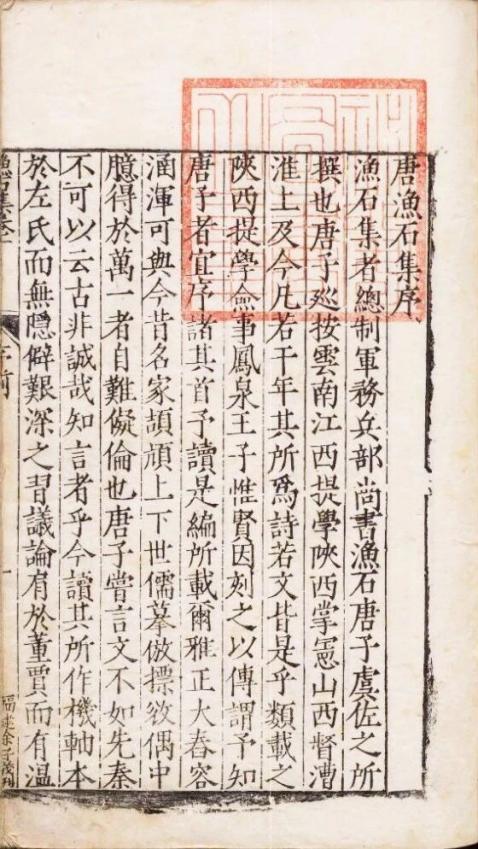 唐漁石集序
漁石集者總制軍務兵部尚書漁石唐子虞佐之所
撰也唐子廵按雲南江西提學陝西掌憲山西督漕
淮上及今凡若干年其所爲詩若文皆是乎類載之
陝西提學僉事鳳泉王子惟賢因刻之以傳謂予知
唐子者宜序諸其首予讀是編所載爾雅正大舂容
涵渾可與今昔名家頡頏上下世儒摹倣摽欬偶中
臆得於萬一者自難儗倫也唐子嘗言文不如先秦
不可以云古非誠哉知言者乎今讀其所作機軸本
於左氏而無隱僻艱深之習議論有於董賈而有溫
序前
一
福建余子茂刊